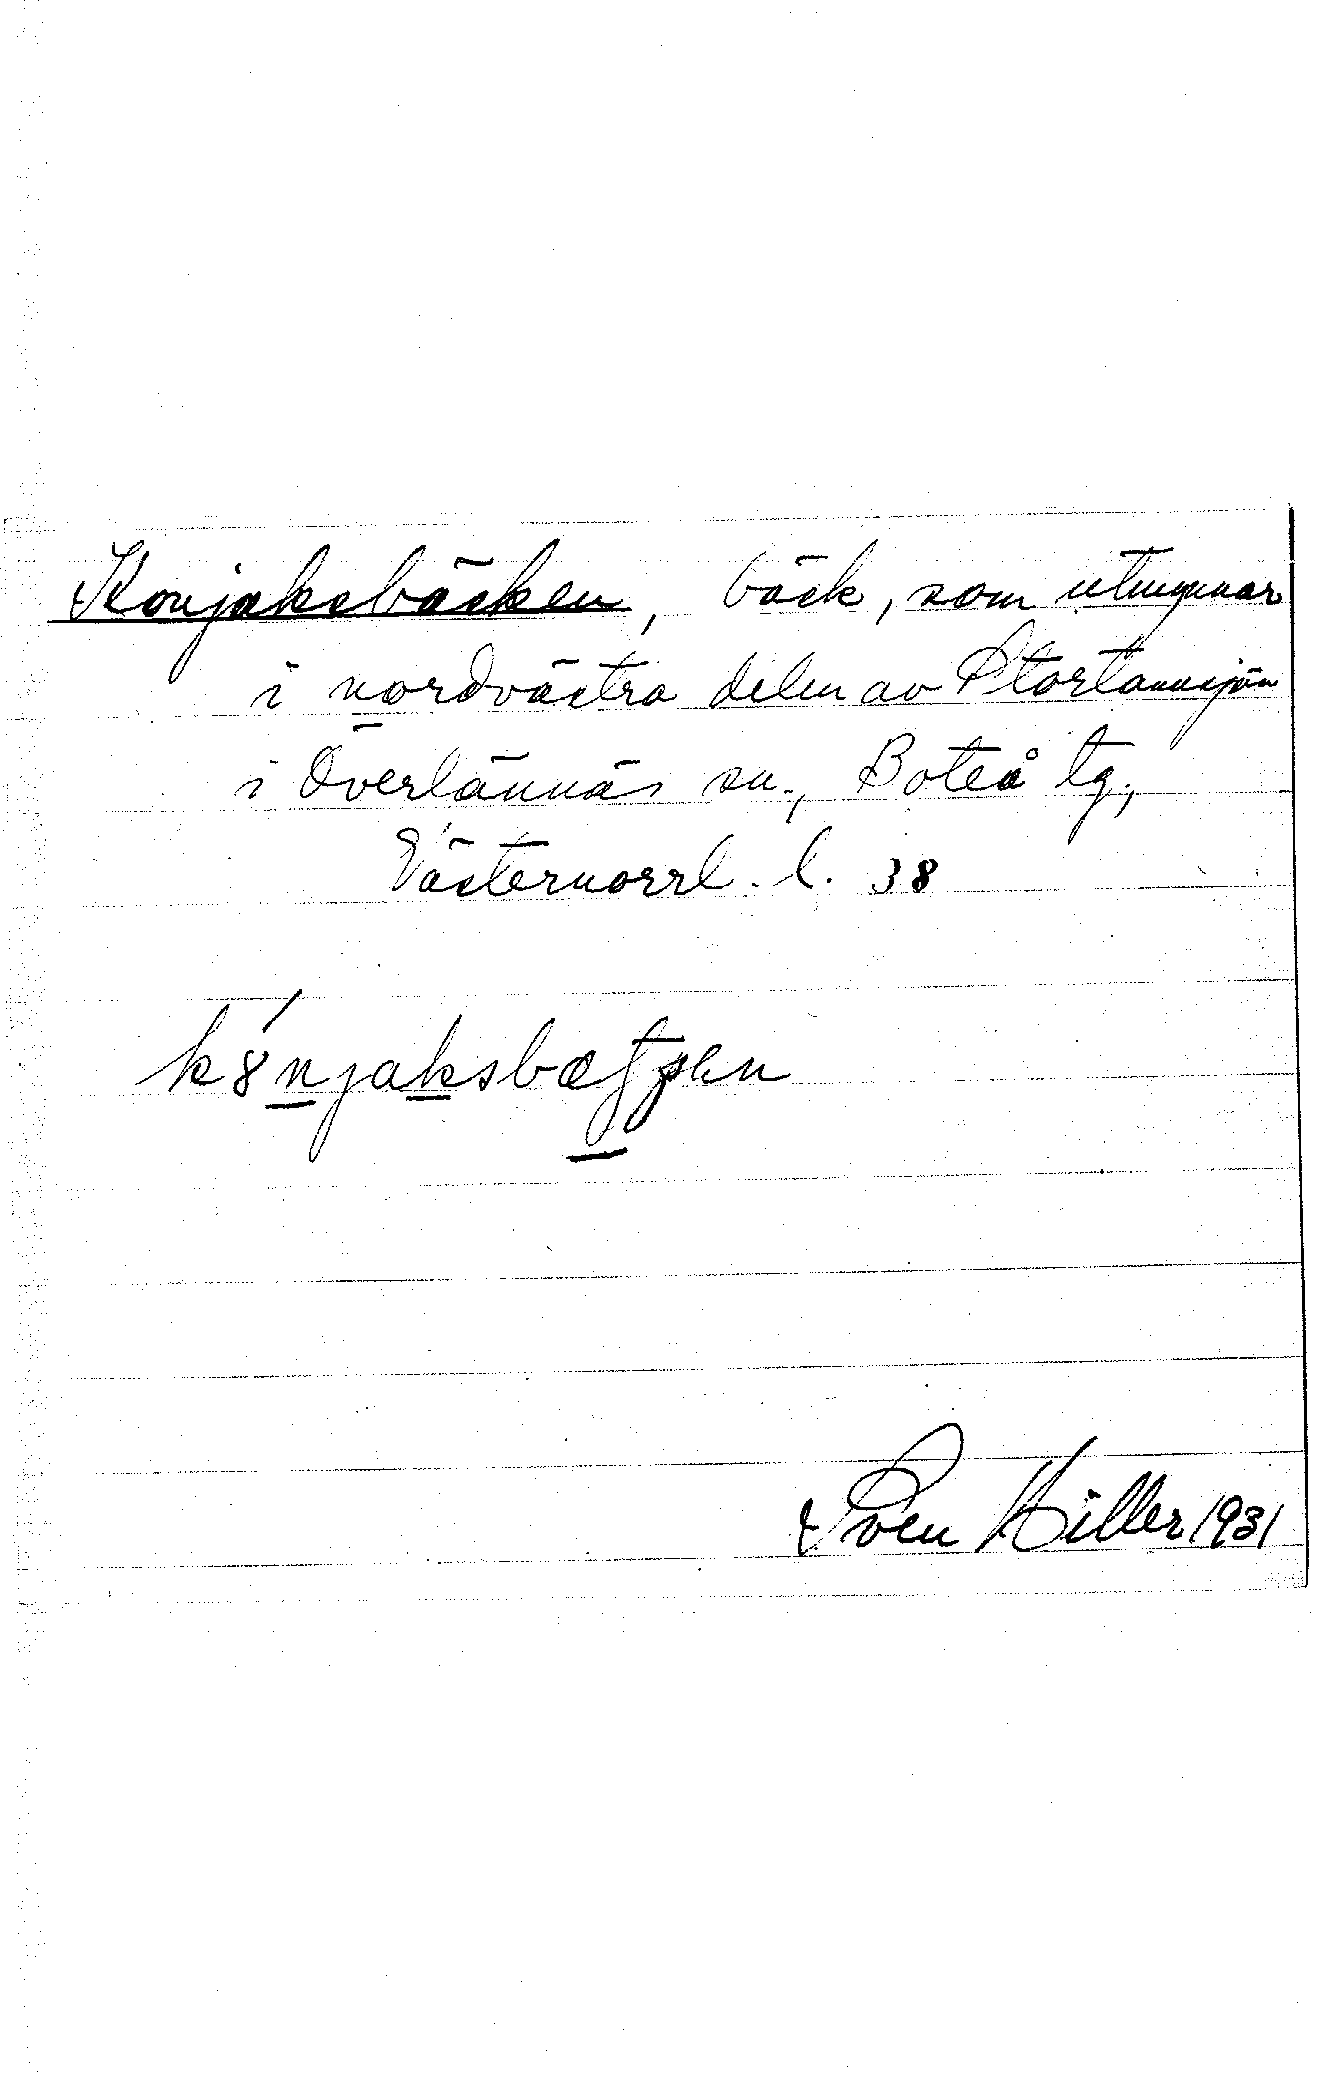 Konjaksbäcken, bäck, som utmynnar
i nordvästra delen av Stortannsjön
i Överlännäs sn., Boteå tg.,
Västernorrl. l. 38
kȣ́njaksbæʈʂen
Sven Hiller 1931